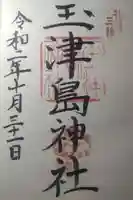 玉津島神社
令和二年十月三十一日